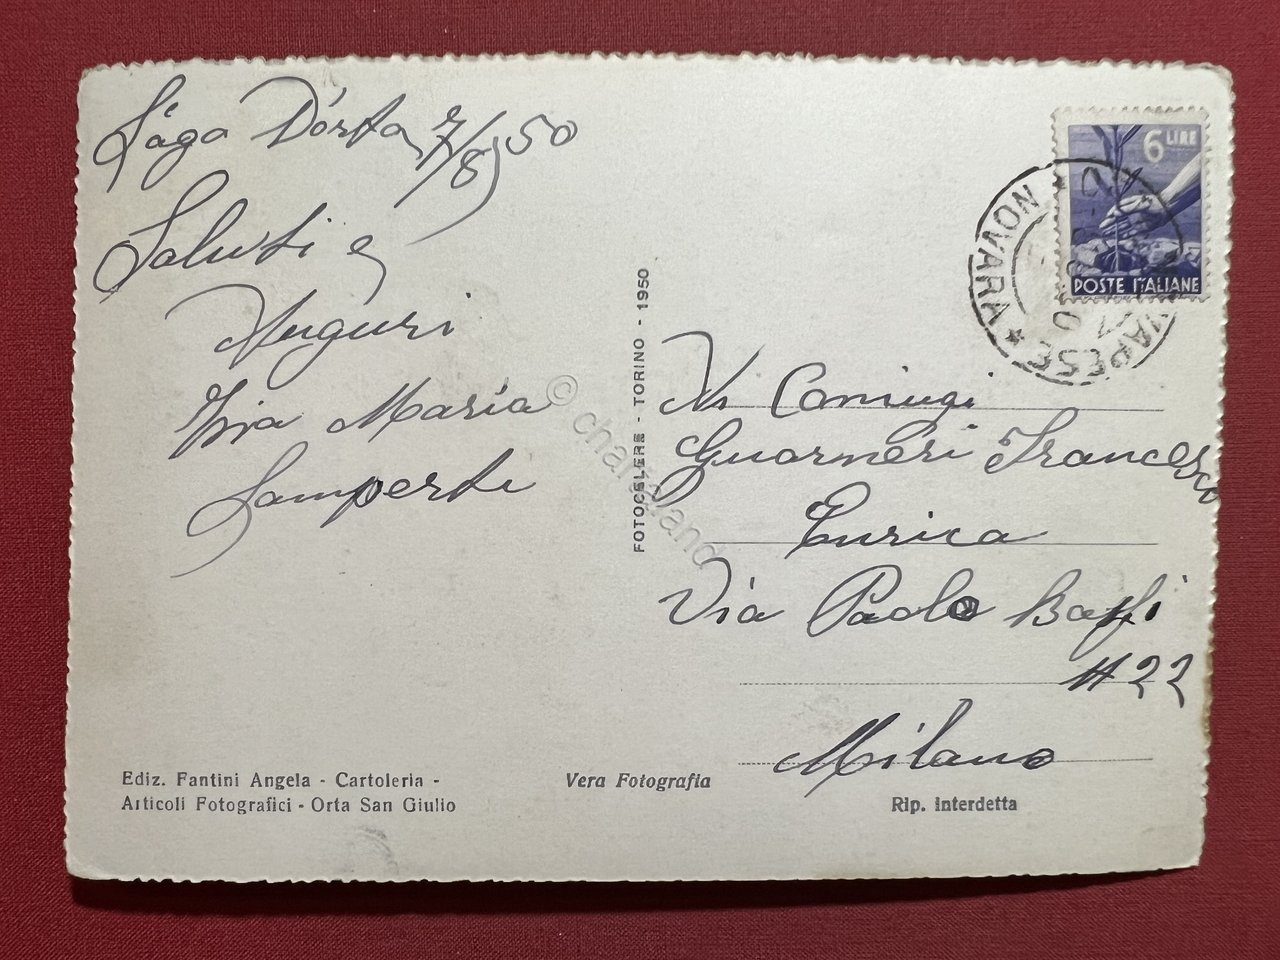 Lago D'orta 7/8/50
Saluti e
Auguri
Zia Maria
Lamperti
6 LIRE
POSTE ITALIANE
NOVARA
FOTOCELERE - TORINO - 1950
Coniugi
Guarneri Francesco
Enrica
Via Paolo Baffi
# 22
Milano
Ediz. Fantini Angela - Cartoleria -
Articoli Fotografici - Orta San Giulio
Vera Fotografia
Rip. interdetta